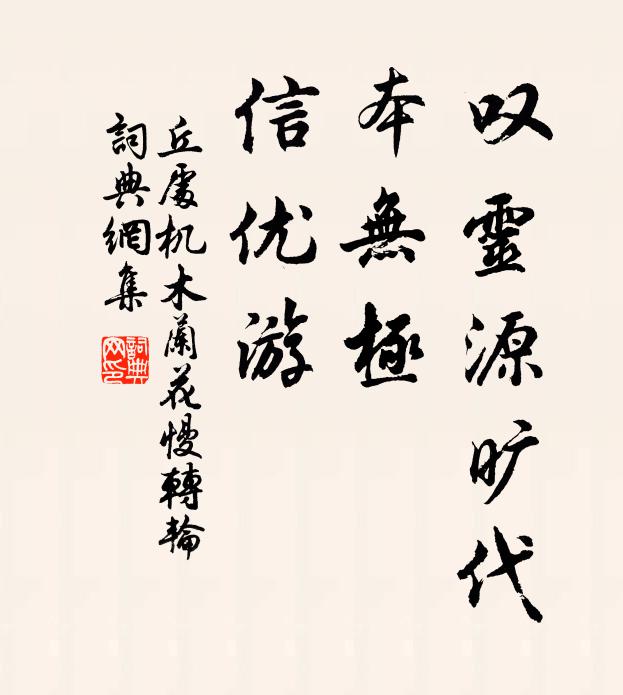 叹靈源旷代
本無極
信优游
丘處机木蘭花慢轉輪
詞典網集
詞典网印